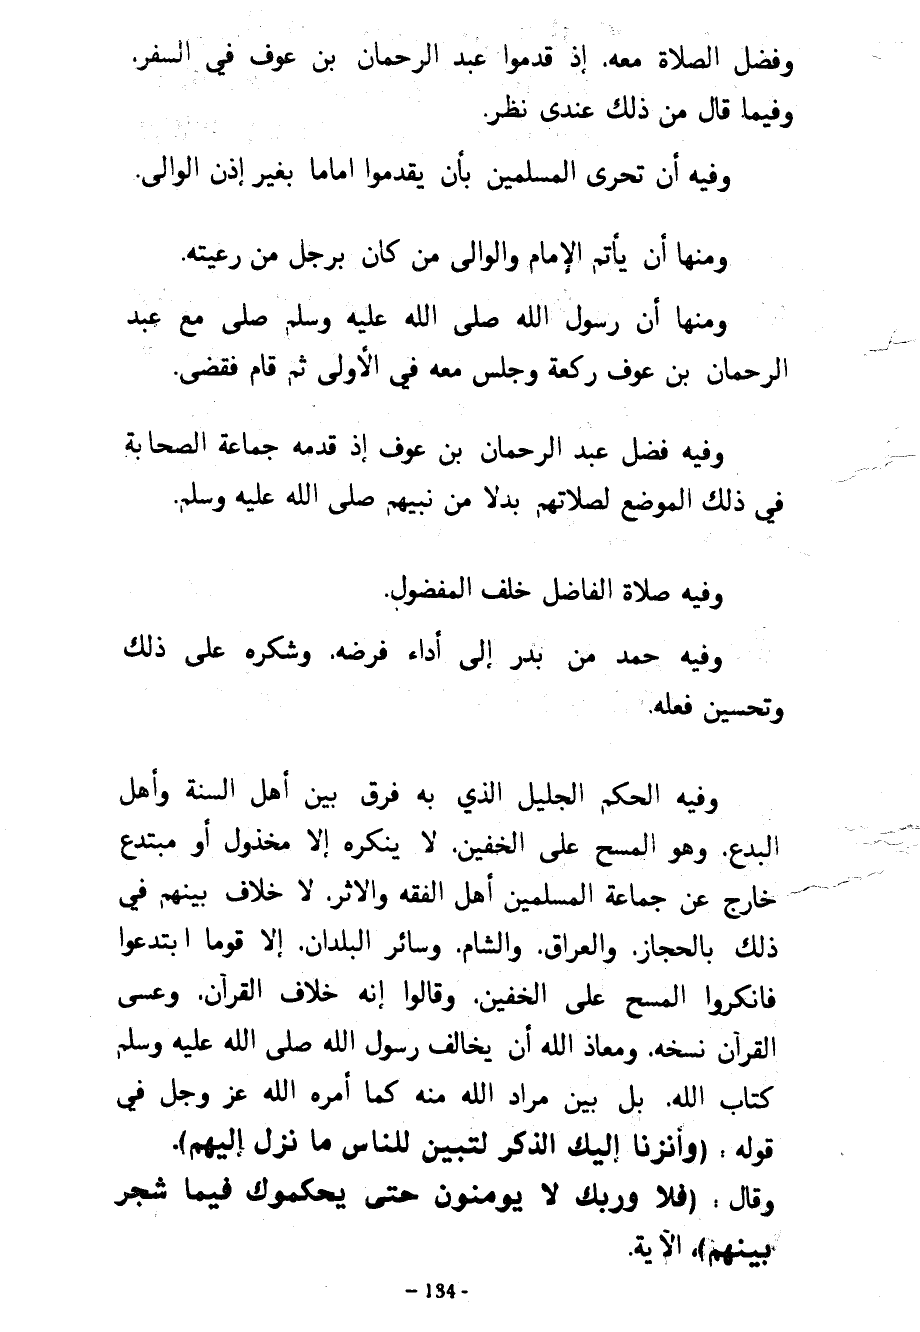 وفضل الصلاة معه. إذ قدموا عبد الرحمان بن عوف في السفر.
وفيما قال من ذلك عندى نظر.
وفيه أن تحرى المسلمين بأن يقدموا اماما بغير إذن الوالى.
ومنها أن يأتم الإمام والوالى من كان برجل من رعيته.
ومنها أن رسول الله صلى الله عليه وسلم صلى مع عبد
الرحمان بن عوف ركعة وجلس معه في الأولى ثم قام فقضى.
وفيه فضل عبد الرحمان بن عوف إذ قدمه جماعة الصحابة
في ذلك الموضع لصلاتهم بدلا من نبيهم صلى الله عليه وسلم.
وفيه صلاة الفاضل خلف المفضول.
وفيه حمد من بدر إلى أداء فرضه. وشكره على ذلك
وتحسين فعله.
وفيه الحكم الجليل الذي به فرق بين أهل السنة وأهل
البدع. وهو المسح على الخفين. لا ينكره إلا مخذول أو مبتدع
خارج عن جماعة المسلمين أهل الفقه والاثر. لا خلاف بينهم في
ذلك بالحجاز. والعراق. والشام. وسائر البلدان. إلا قوما ابتدعوا
فانكروا المسح على الخفين. وقالوا إنه خلاف القرآن. وعسى
القرآن نسخه. ومعاذ الله أن يخالف رسول الله صلى الله عليه وسلم
كتاب الله. بل بين مراد الله منه كما أمره الله عز وجل في
قوله : (وأنزنا إليك الذكر لتبين للناس ما نزل إليهم).
وقال : (فلا وربك لا يومنون حتى يحكموك فيما شجر
بينهم)، الآية.
- 134 -